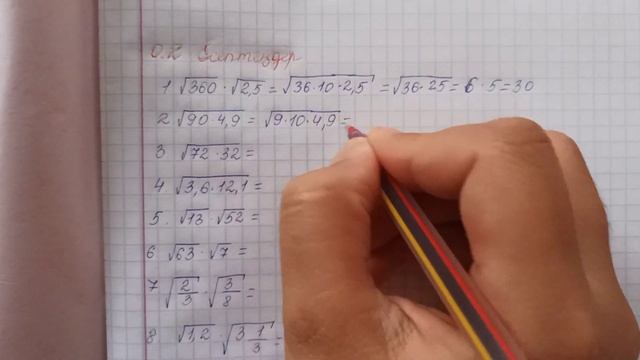 1 √360 · √2,5 = √36·10·2,5 = √36·25 = 6 · 5 = 30
2 √90·4,9 = √9·10·4,9 =
3 √72·32 =
4 √3,6·12,1 =
5. √13 · √52 =
6 √63 · √7 =
7 √2/3 · √3/8 =
8 √1,2 · √3 1/3 =